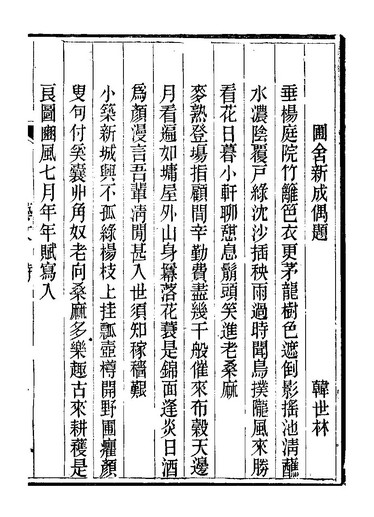 圃舍新成偶題
韓世林
垂楊庭院竹籬笆衣更茅龍樹色遮倒影搖池清蘸
水濃陰覆戸綠沈沙插秧雨過時聞鳥撲隴風來勝
看花日暮小軒聊憩息鬅頭笑進老桑麻
麥熟登場指顧間辛勤費盡幾千般催來布穀天邊
月看遍如墉屋外山身羃落花蓑是錦面逢炎日酒
為顏漫言吾輩清閒甚入世須知稼穡艱
小築新城興不孤綠楊枝上挂瓢壺樽開野圃癯顏
叟句付奚囊丱角奴老向桑麻多樂趣古來耕穫是
良圖豳風七月年年賦寫入